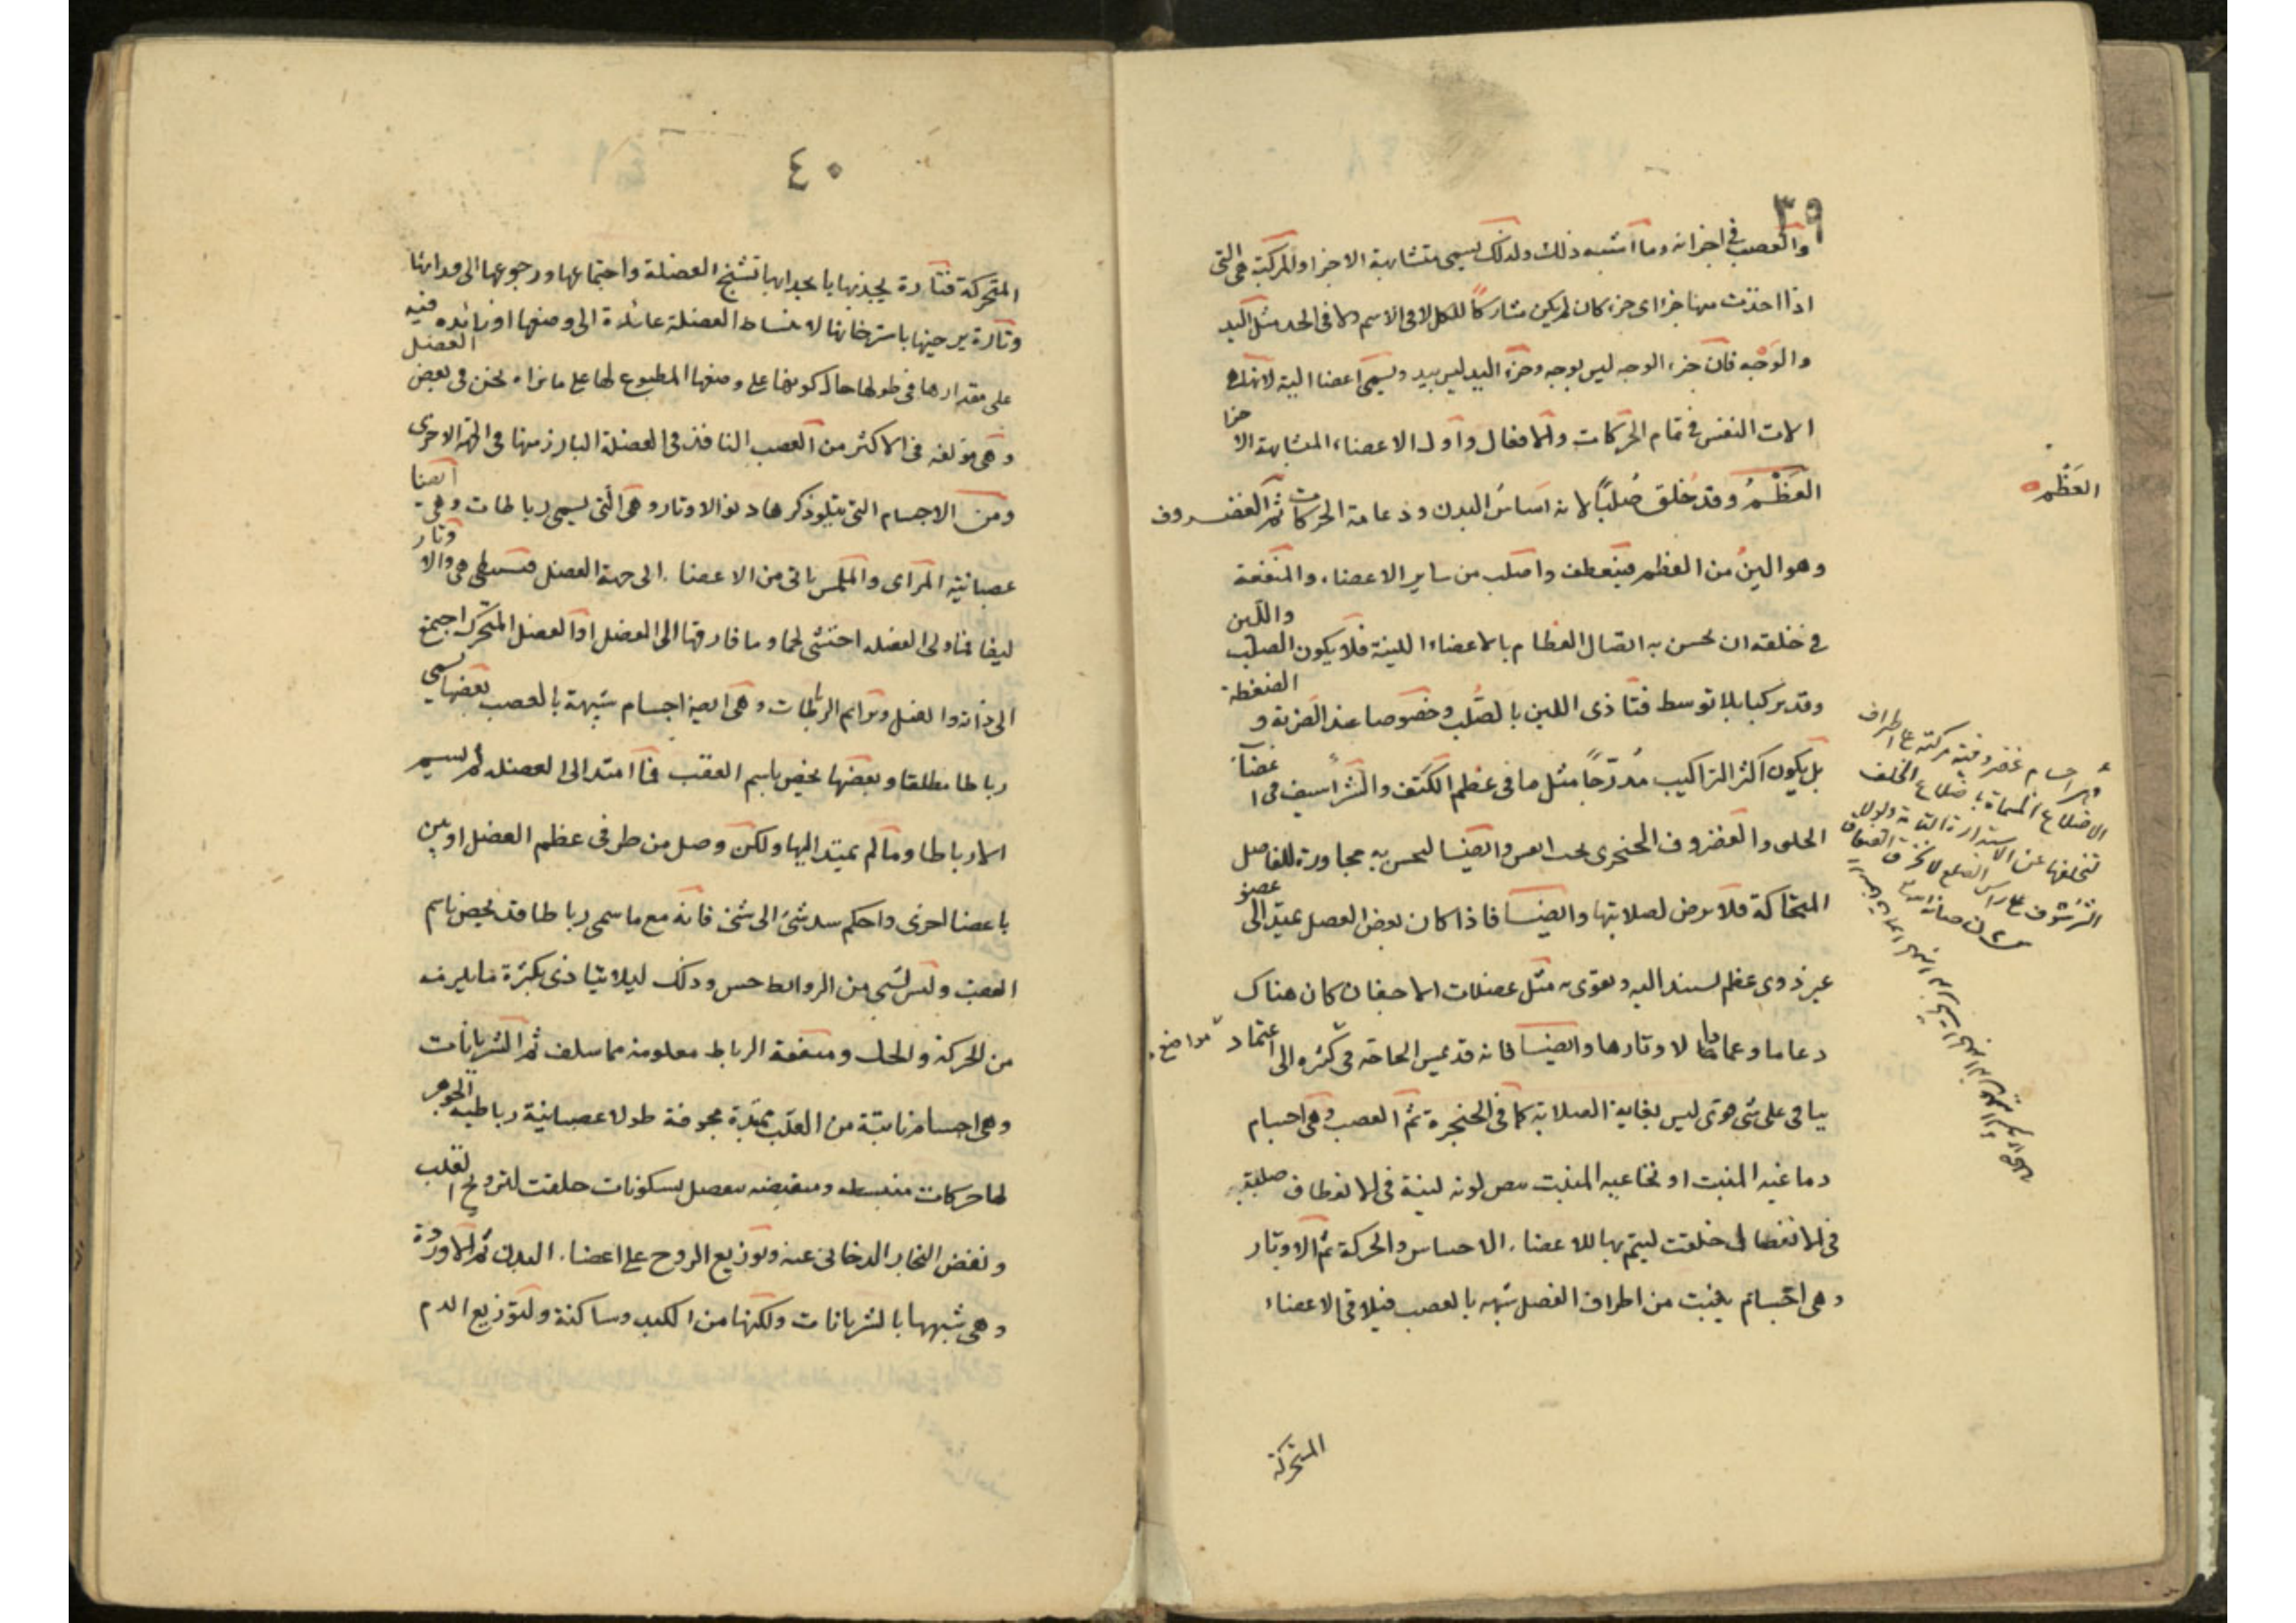 ٣٩
والعصب في اجزائه وما اشبه ذلك ولذلك يسمى متشابهة الاجزا والمركبة هى التى
اذا اخذت منها جزءا اى جزء كان لم يكن مشاركًا للكل لا فى الاسم ولا فى الحد مثل اليد
والوجه فان جزء الوجه ليس بوجه وجزء اليد ليس بيد ويسمى اعضا الية لانها هى
الات النفس في تمام الحركات والافعال واول الاعضاء المتشابهة الاجزا
العَظْمُ وقد خُلق صُلبًا لانه اساسُ البدن ودعامة الحركات ثم الغضروف
وهو الين من العظم فينعطف واصلب من ساير الاعضاء والمنفعة
في خلقه ان يحسن به اتصال العظام بالاعضاء اللينة فلا يكون الصلب واللين
وقد تركبا بلا توسط فتاذى اللين بالصُلب وخصوصا عند الضربة والضغطة
بل يكون اكثر التراكيب مُدرّجًا مثل ما فى عظم الكتف والشراسيف فى اعضآء
الحلق والغضروف الحنجرى تحت القس وايضا ليحسن به مجاورة المفاصل
المتحاكة فلا ترض لصلابتها وايضا فاذا كان بعض العضل يمتد الى عضو
غير ذوى عظم يستند اليه ويقوى به مثل عضلات الاجفان كان هناك
دعاما وعمادا لاوتارها وايضا فانه قد تمس الحاجة فى كثرة الى اعتماد
مواضع
يتاتى على شى قوى ليس بغاية الصلابة كما فى الحنجرة ثم العصب وهى اجسام
دماغية المنبت او نخاعية المنبت بيض لونه لينة فى الانعطاف صلبة
فى الانفصال خلقت ليتم بها للاعضاء الاحساس والحركة ثم الاوتار
وهى اجسام ينبت من اطراف العضل شبيه بالعصب فيلاقى الاعضاء
المتحركة
العَظْم
اجسام غضروفية مركبة على اطراف
الاضلاع المسماة باضلاع الخلف
٤٠
المتحركة فتارة يجذبها بانجذابها تشنج العضلة واجتماعها ورجوعها الى ورائها
وتارة يرخيها باسترخائها لانبساط العضلة عائدة الى وضعها او زائدة فيه
على مقدارها فى طولها حال كونها على وضعها المطبوع لها على ما نراه نحن فى بعض العضل
وهى مؤلفة فى الاكثر من العصب النافذ فى العضلة البارز منها فى الجهة الاخرى
ومن الاجسام التى يتلو ذكرها ذكر الاوتار وهى التى يسمى رباطات وهى ايضا
عصبانية المراى والملمس ياتى من الاعضاء الى جهة العضل فتتشظى هى والاوتار
ليفا فما ولى العضلة احتشى لحما وما فارقها الى المفصل او العضل المتحرك اجتمع
الى ذاته وانفتل وترا ثم الرباطات وهى ايضا اجسام شبيهة بالعصب بعضها يسمى
رباطا مطلقا وبعضها يخص باسم العقب فما امتد الى العضلة لم يسم
الا رباطا وما لم يمتد اليها ولكن وصل من طرفى عظم المفصل او بين
باعضا اخرى واحكم شد شئ الى شئ فانه مع ما سمى رباطا قد يخص باسم
العقب وليس لشى من الروابط حس وذلك ليلا يتاذى بكثرة ما يلزمه
من الحركة والحك ومنفعة الرباط معلومة مما سلف ثم الشريانات
وهى اجسام نابتة من القلب ممتدة مجوفة طولا عصبانية رباطية الجوهر
لها حركات منبسطه ومنقبضه تنفصل بسكونات خلقت لترويح القلب
ونفض البخار الدخانى عنه وتوزيع الروح على اعضاء البدن ثم الاوردة
وهى شبيهها بالشريانات ولكنها من الكبد وساكنة ولتوزيع الدم